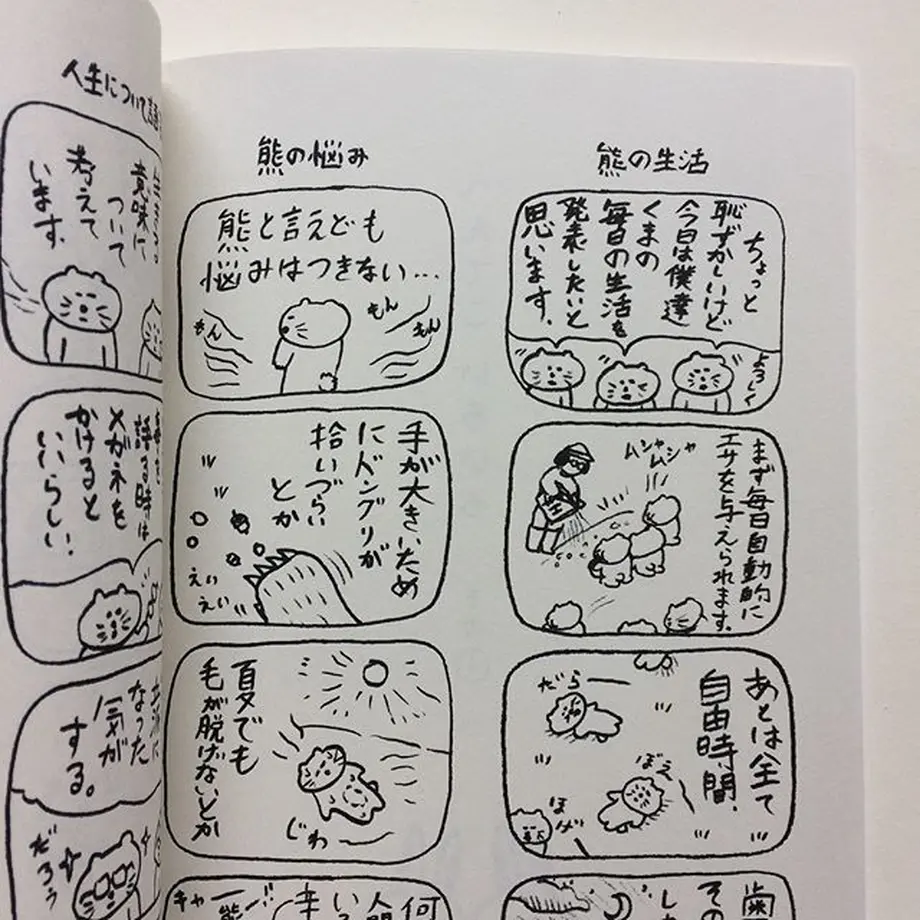 熊の生活
ちょっと
恥ずかしいけど
今日は僕達
くまの
毎日の生活を
発表したいと
思います.
よろしく
まず毎日自動的に
エサを与えられます.
ムシャ
ムシャ
あとは全て
自由時間.
だらー
ぼー
ほげー
歯
その
熊の悩み
熊と言えども
悩みはつきない…
もん
もん
もん
手が大きいため
にドングリが
拾いづらい
とか
えい
えい
夏でも
毛が脱げないとか
じわー
何
人間
キャー
熊ー
人生について
意味に
ついて
考えて
います.
語る時は
メガネを
かけると
いいらしい.
なった
気が
する。
だろう